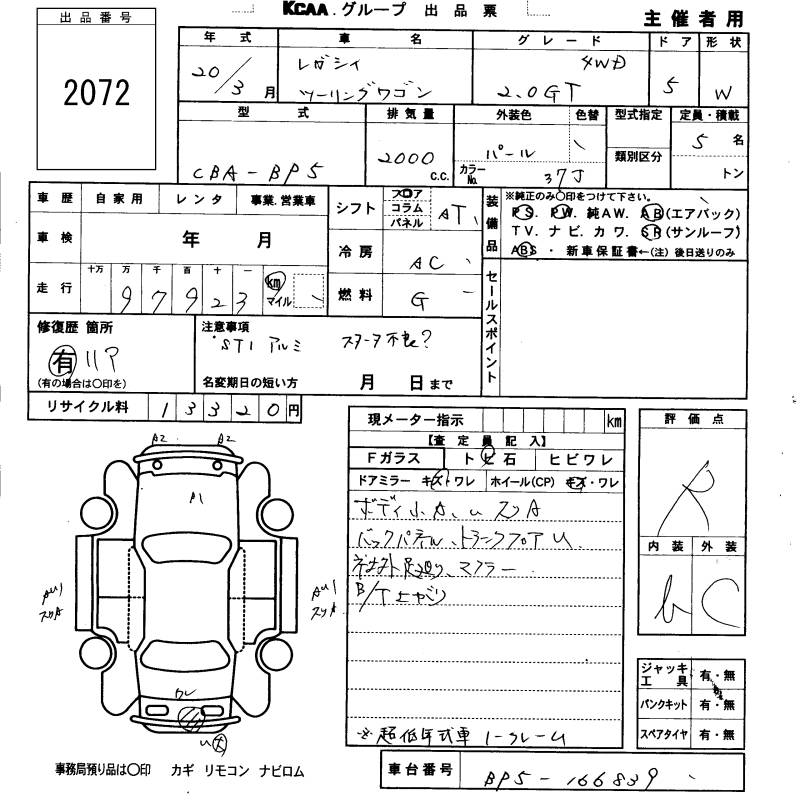 KCAA.グループ 出品票
主催者用
出品番号
2072
年式 車名 グレード ドア 形状
20/3月 レガシィ 4WD 5 W
ツーリングワゴン 2.0GT
型式 排気量 外装色 色替 型式指定 定員・積載
CBA-BP5 2000c.c. パール 5名
カラーNo. 37J 類別区分 トン
車歴 自家用 レンタ 事業.営業車
車検 年 月
走行 十万 万 千 百 十 一 km
9 7 9 2 3 マイル
シフト フロア コラム パネル AT
冷房 AC
燃料 G
装備品
※純正のみ○印をつけて下さい。
PS. PW. 純AW. AB(エアバック)
TV. ナビ. カワ. SR(サンルーフ)
ABS ・ 新車保証書←(注)後日送りのみ
セールスポイント
修復歴 箇所
有 リア
(有の場合は○印を)
注意事項
STI アルミ スターター不良?
名変期日の短い方 月 日まで
リサイクル料 13320円
現メーター指示 km
【査定員記入】
Fガラス トビ石 ヒビワレ
ドアミラー キズ・ワレ ホイール(CP) キズ・ワレ
ボディ小A、U スリA
バックパネル、トランクフロアU
社外足廻り、マフラー
B/T上がり
※超低年式車 ノークレーム
評価点
R
内装 外装
b C
A2 A2
A1
AU1
スリA
AU1
スリA
ワレ
U大
ジャッキ工具 有・無
パンクキット 有・無
スペアタイヤ 有・無
事務局預り品は○印 カギ リモコン ナビロム
車台番号 BP5-166839